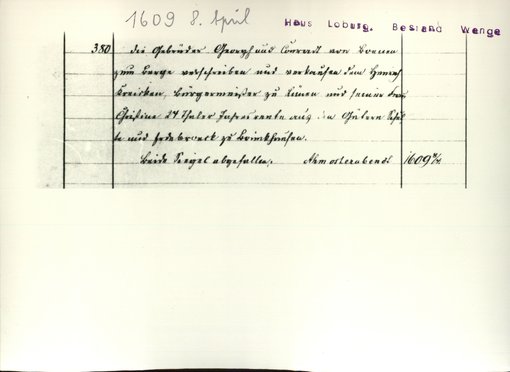 1609 8. April
Haus Loburg. Bestand Wenge
380 die Gebrüder Georgh und Conradt von Boenen
zum Berge verschreiben und verkaufen dem Henrich
Kreicken, Bürgermeister zu Lünen und seiner Frau
Christine 24 Thaler Jahresrente aus den Gütern
te und zu Brinkhausen.
Beide Siegel abgefallen. Ahm osterabendt 1609